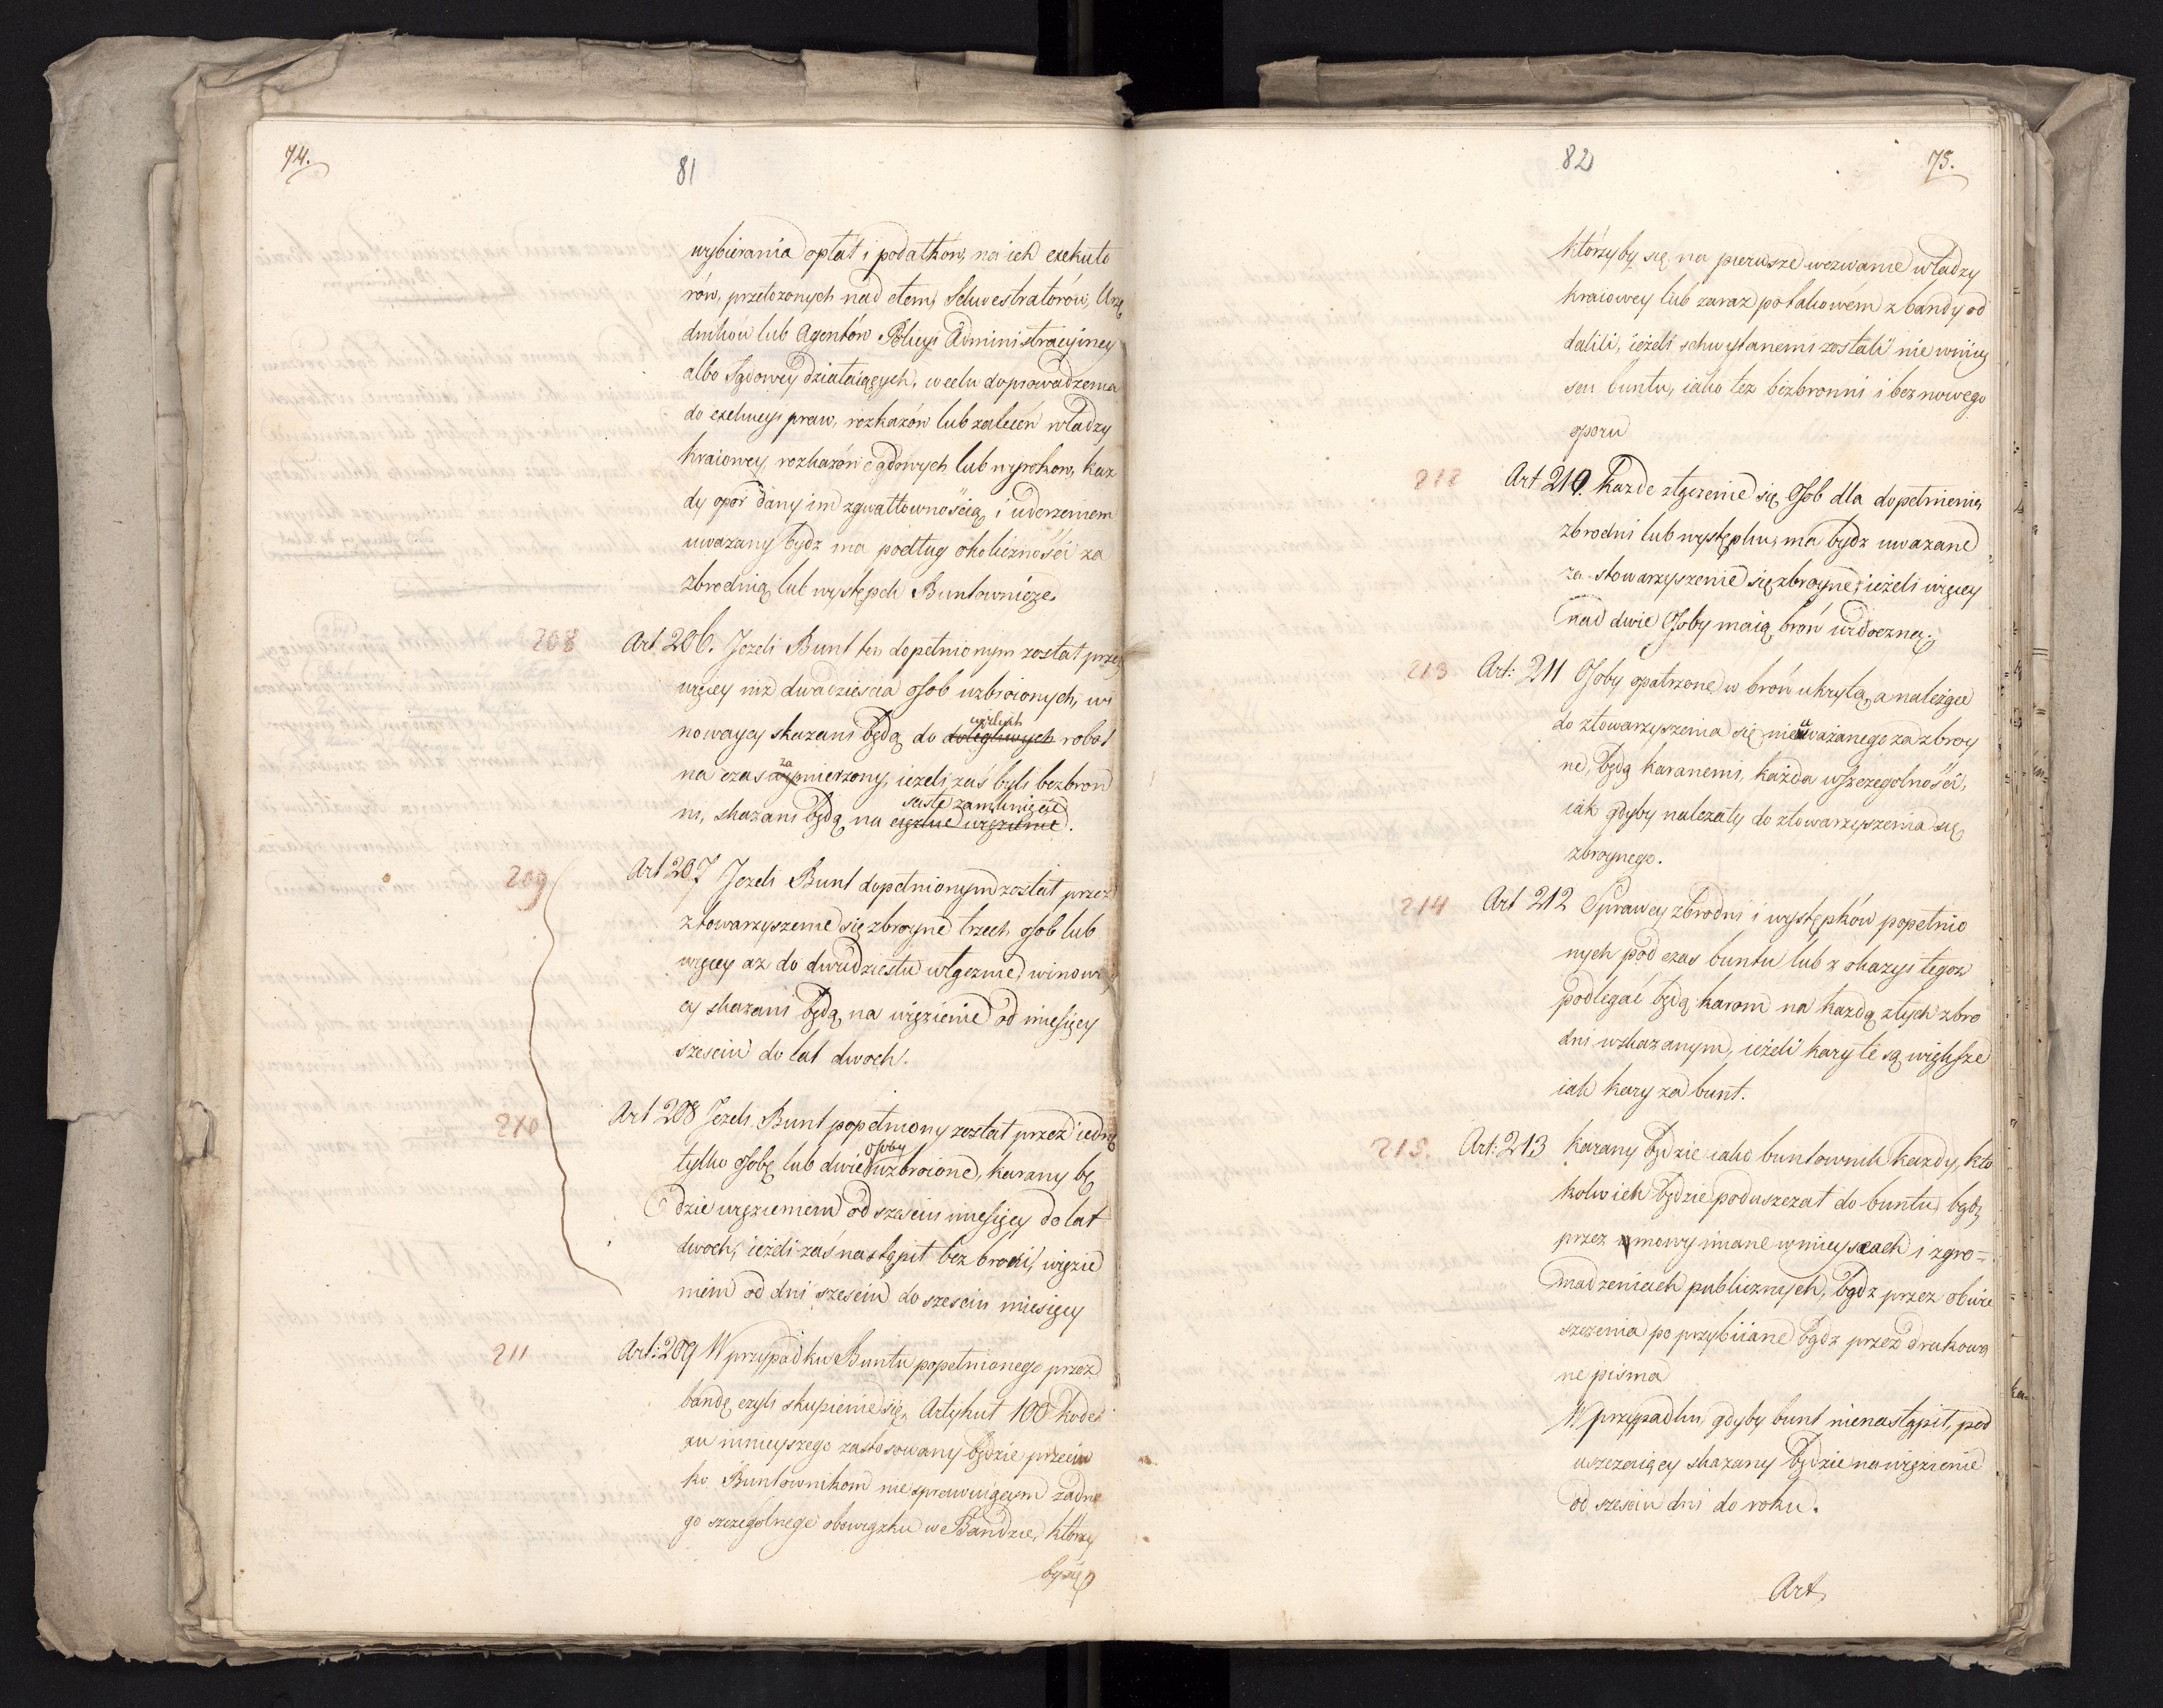 74.
81
wybierania opłat i podatków, na ich exekuto
rów, przełożonych nad ctemi, Sekwestratorów, Urzę
dników lub Agentów Policyi Administracyiney
albo Sądowey działaiących, w celu doprowadzenia
do exekucyi praw, rozkazów lub zaleceń władzy
kraiowey, rozkazów Sądowych lub wyroków, każ
dy opór dany im zgwałtownością i uderzeniem
uważany bydz ma podług okoliczności za
zbrodnią lub występek Buntownicze.
208 Art 206. Jeżeli Bunt ten dopełnionym został przez
więcey niż dwadzieścia osob uzbroionych, wi
nowaycy skazani będą do dolegliwych robot
ciężkich
na czas wymierzony, ieżeli zaś byli bezbron
za
ni, skazani będą na ciężkie więzienie.
ścisłe zamknięcie
209 Art 207 Jeżeli Bunt dopełnionym został przez
ztowarzyszenie się zbroyne trzech osob lub
więcey aż do dwudziestu włącznie, winoway
cy skazani będą na więzienie od miesięcy
sześciu do lat dwoch.
210 Art 208 Jeżeli Bunt popełniony został przez iednę
tylko osobę lub dwie uzbroione, karany bę
osoby
dzie więzieniem od sześciu miesięcy do lat
dwoch, ieżeli zaś nastąpił bez broni, więzie
niem od dni sześciu do sześciu miesięcy
211 Art: 209 W przypadku Buntu popełnionego przez
bandę czyli skupienie się, Artykuł 100 kodex
zu ninieyszego zastosowany będzie przeciw
ko Buntownikom niesprawuiącym żadne
go szczególnego obowiązku w Bandzie, którzy
by się
82
75.
którzyby się na pierwsze wezwanie władzy
kraiowey lub zaraz po takowém z bandy od
dalili, ieżeli schwytanemi zostali nie w miey
scu buntu, iako też bezbronni i bez nowego
oporu
212 Art 210. Każde złączenie się Osob dla dopełnienia
zbrodni lub występku, ma bydz uważane
za stowarzyszenie się zbroyne, ieżeli więcey
nad dwie Osoby maią broń widoczną.
213 Art: 211 Osoby opatrzone w broń ukrytą, a należące
do ztowarzyszenia się nieuważanego za zbroy
ne, będą karanemi, każda wszczególności,
iak gdyby należały do ztowarzyszenia się
zbroynego.
214 Art 212 Sprawcy zbrodni i występków popełnio
nych pod czas buntu lub z okazyi tegoż
podlegać będą karom na każdą z tych zbro
dni wskazanym, ieżeli kary te są większe
iak kary za bunt.
215. Art: 213 Karany będzie iako buntownik każdy, kto
kolwiek będzie poduszczał do buntu, bądź
przez mowy miane w mieyscach i zgro=
madzeniach publicznych, bądz przez obwie
szczenia po przybiiane bądz przez drukowa
ne pisma
W przypadku, gdyby bunt nienastąpił, pod
uszczaiący skazany będzie na więzienie
od sześciu dni do roku.
Art